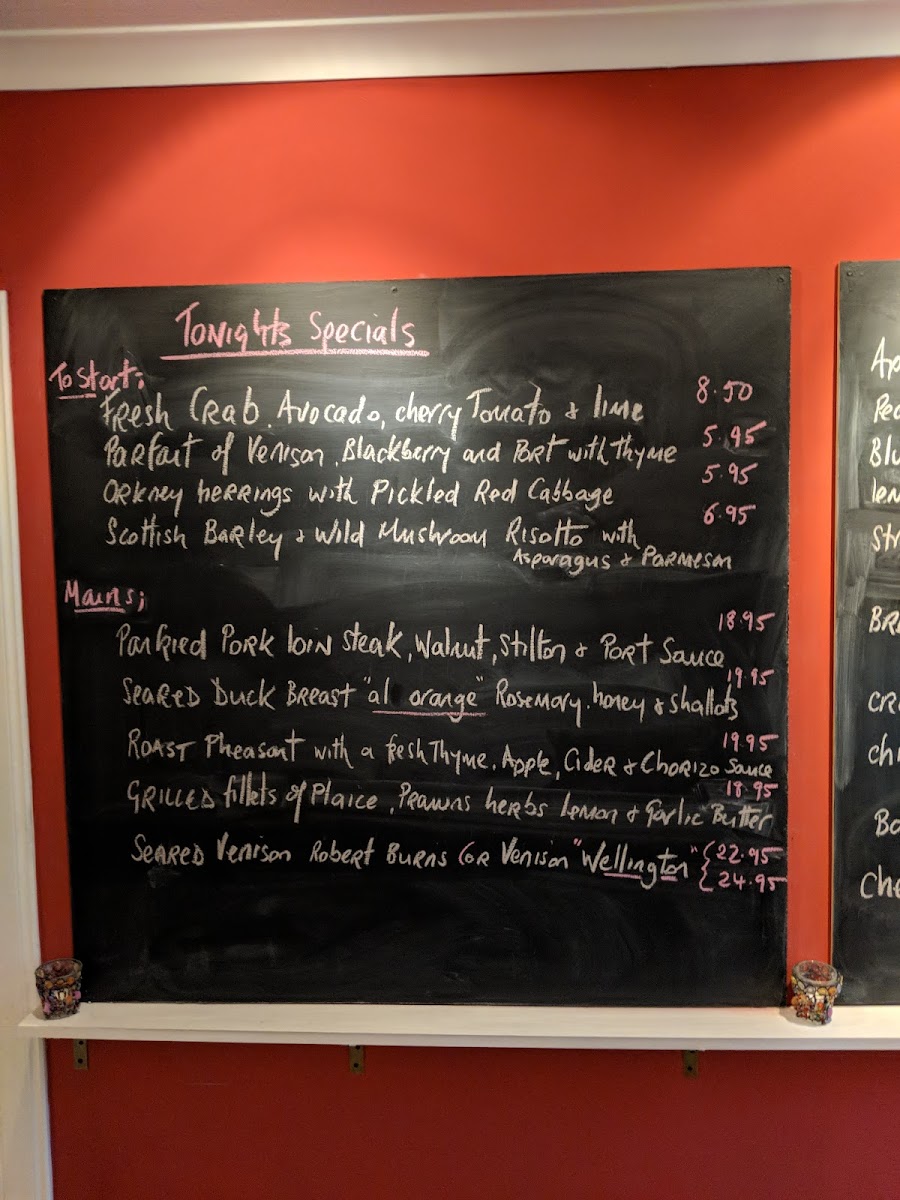 Tonights Specials
To Start;
Fresh Crab. Avocado, cherry Tomato & lime 8.50
Parfait of Venison, Blackberry and Port with Thyme 5.95
Orkney herrings with Pickled Red Cabbage 5.95
Scottish Barley & Wild Mushroom Risotto with 6.95
Asparagus & Parmesan
Mains;
Panfried Pork loin steak, Walnut, Stilton & Port Sauce 18.95
Seared Duck Breast "al orange" Rosemary, honey & shallots 19.95
Roast Pheasant with a fresh Thyme, Apple, Cider & Chorizo Sauce 19.95
Grilled fillets of Plaice, Prawns herbs Lemon & Garlic Butter 18.95
Seared Venison Robert Burns (or Venison "Wellington" {22.95
{24.95
Ap
Blu
Str
BRE
CR
Ch
Bo
Che